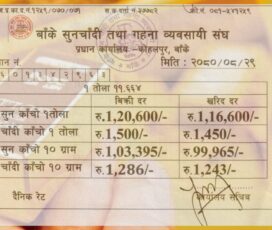 जि.प्र.का.द.नं.१२५९/०७०/०७१
फोन नं. ०८१-५४१२५९
बाँके सुनचाँदी तथा गहना व्यवसायी संघ
प्रधान कार्यालय - कोहलपुर, बाँके
मिति : २०८०/०८/२९
१ तोला ११.६६४
बिक्री दर खरिद दर
सुन काँचो १ तोला रु.1,20,600/- रु.1,16,600/-
चाँदी काँचो १ तोला रु.1,500/- रु.1,450/-
सुन काँचो १० ग्राम रु.1,03,395/- रु.99,965/-
चाँदी काँचो १० ग्राम रु.1,286/- रु.1,243/-
दैनिक रेट कार्यालय सचिव